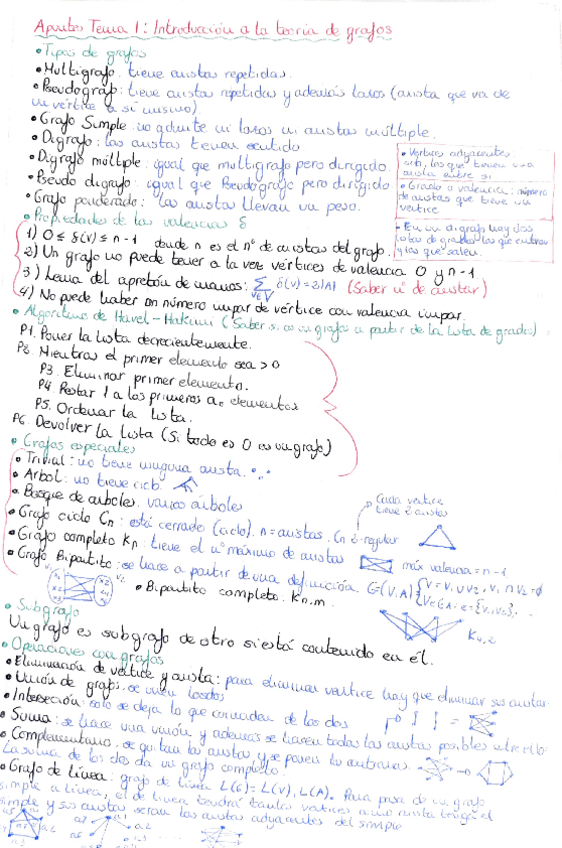 Apuntes Tema 1: Introducción a la teoría de grafos
• Tipos de grafos
• Multigrafo: tiene aristas repetidas.
• Pseudografo: tiene aristas repetidas y además lazos (arista que va de
un vértice a si mismo)
• Grafo Simple: no admite ni lazos ni aristas múltiple.
• Digrafo: las aristas tienen sentido
• Digrafo múltiple: igual que multigrafo pero dirigido.
• Pseudo digrafo: igual que Pseudografo pero dirigido
• Grafo ponderado: las aristas llevan un peso.
• Vértices adyacentes:
son los que tienen una
arista entre si
• Grado o valencia: número
de aristas que tiene un
vértice
- En un digrafo hay dos
listas de grados: los que entran
y los que salen.
• Propiedades de las valencias δ
1) 0 ≤ δ(v) ≤ n-1 donde n es el nº de aristas del grafo.
2) Un grafo no puede tener a la vez vértices de valencia 0 y n-1
3) Lema del apretón de manos: Σ δ(v) = 2|A| (Saber nº de aristas)
v∈V
4) No puede haber un número impar de vértice con valencia impar.
• Algoritmo de Havel-Hakimi (Saber si es un grafo a partir de la lista de grados)
P1. Poner la lista decrecientemente.
P2. Mientras el primer elemento sea > 0
P3. Eliminar primer elemento.
P4. Restar 1 a los primeros a elementos
P5. Ordenar la lista.
P6. Devolver la lista (Si todo es 0 es un grafo)
• Grafos especiales
• Trivial: no tiene ninguna arista.
• Arbol: no tiene ciclo.
• Bosque de arboles: varios árboles
• Grafo ciclo Cn: está cerrado (ciclo). n = aristas. Cn 2-regular
Cada vértice
tiene 2 aristas
• Grafo completo Kn: tiene el nº máximo de aristas
máx valencia = n-1
• Grafo Bipartito: se hace a partir de una definición. G=(V,A) {V = V1 ∪ V2, V1 ∩ V2 = ∅
∀e∈A: e={v1,v2}
V1 V2
• Bipartito completo: Kn,m.
K4,2
• Subgrafo
Un grafo es subgrafo de otro si está contenido en él.
• Operaciones con grafos
• Eliminación de vértice y arista: para eliminar vertice hay que eliminar sus aristas
• Unión de grafos: se unen los dos
• Intersección: solo se deja lo que coinciden de los dos
• Suma: se hace una unión y además se hacen todas las aristas posibles entre ellos
• Complementario: se quitan las aristas y se ponen las contrarias.
La suma de los dos da un grafo completo
• Grafo de línea: grafo de línea L(G) = L(V), L(A). Para pasar de un grafo
simple a línea, el de línea tendrá tantos vertices como arista tenga el
simple y sus aristas seran las aristas adyacentes del simple